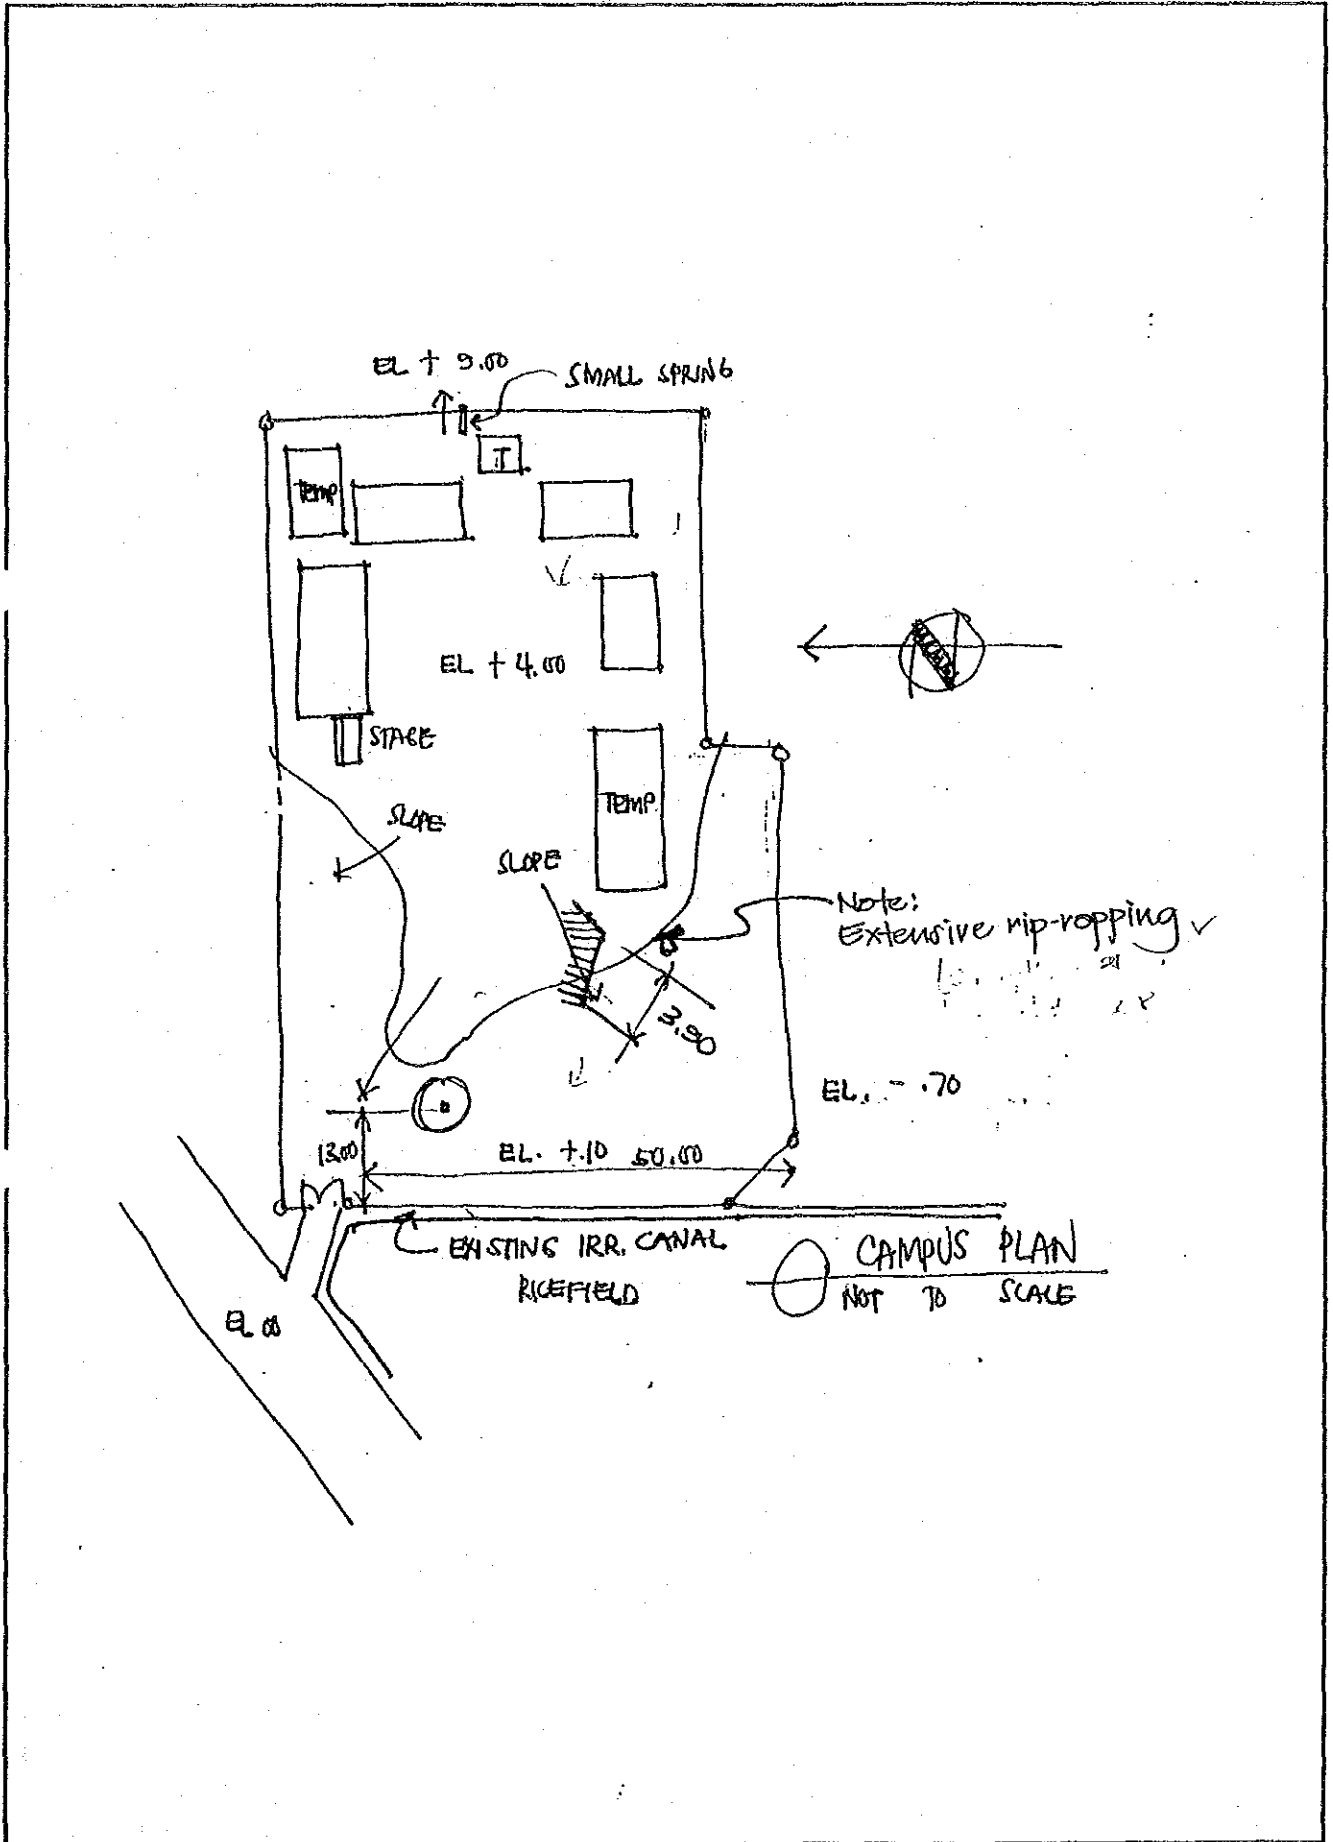 EL + 9.00
SMALL SPRING
T
TEMP
EL + 4.00
N
STAGE
TEMP
SLOPE
SLOPE
Note:
Extensive rip-ropping
3.90
EL. - .70
13.00
EL. +.10 50.00
EXISTING IRR. CANAL
RICEFIELD
CAMPUS PLAN
NOT TO SCALE
EL 00